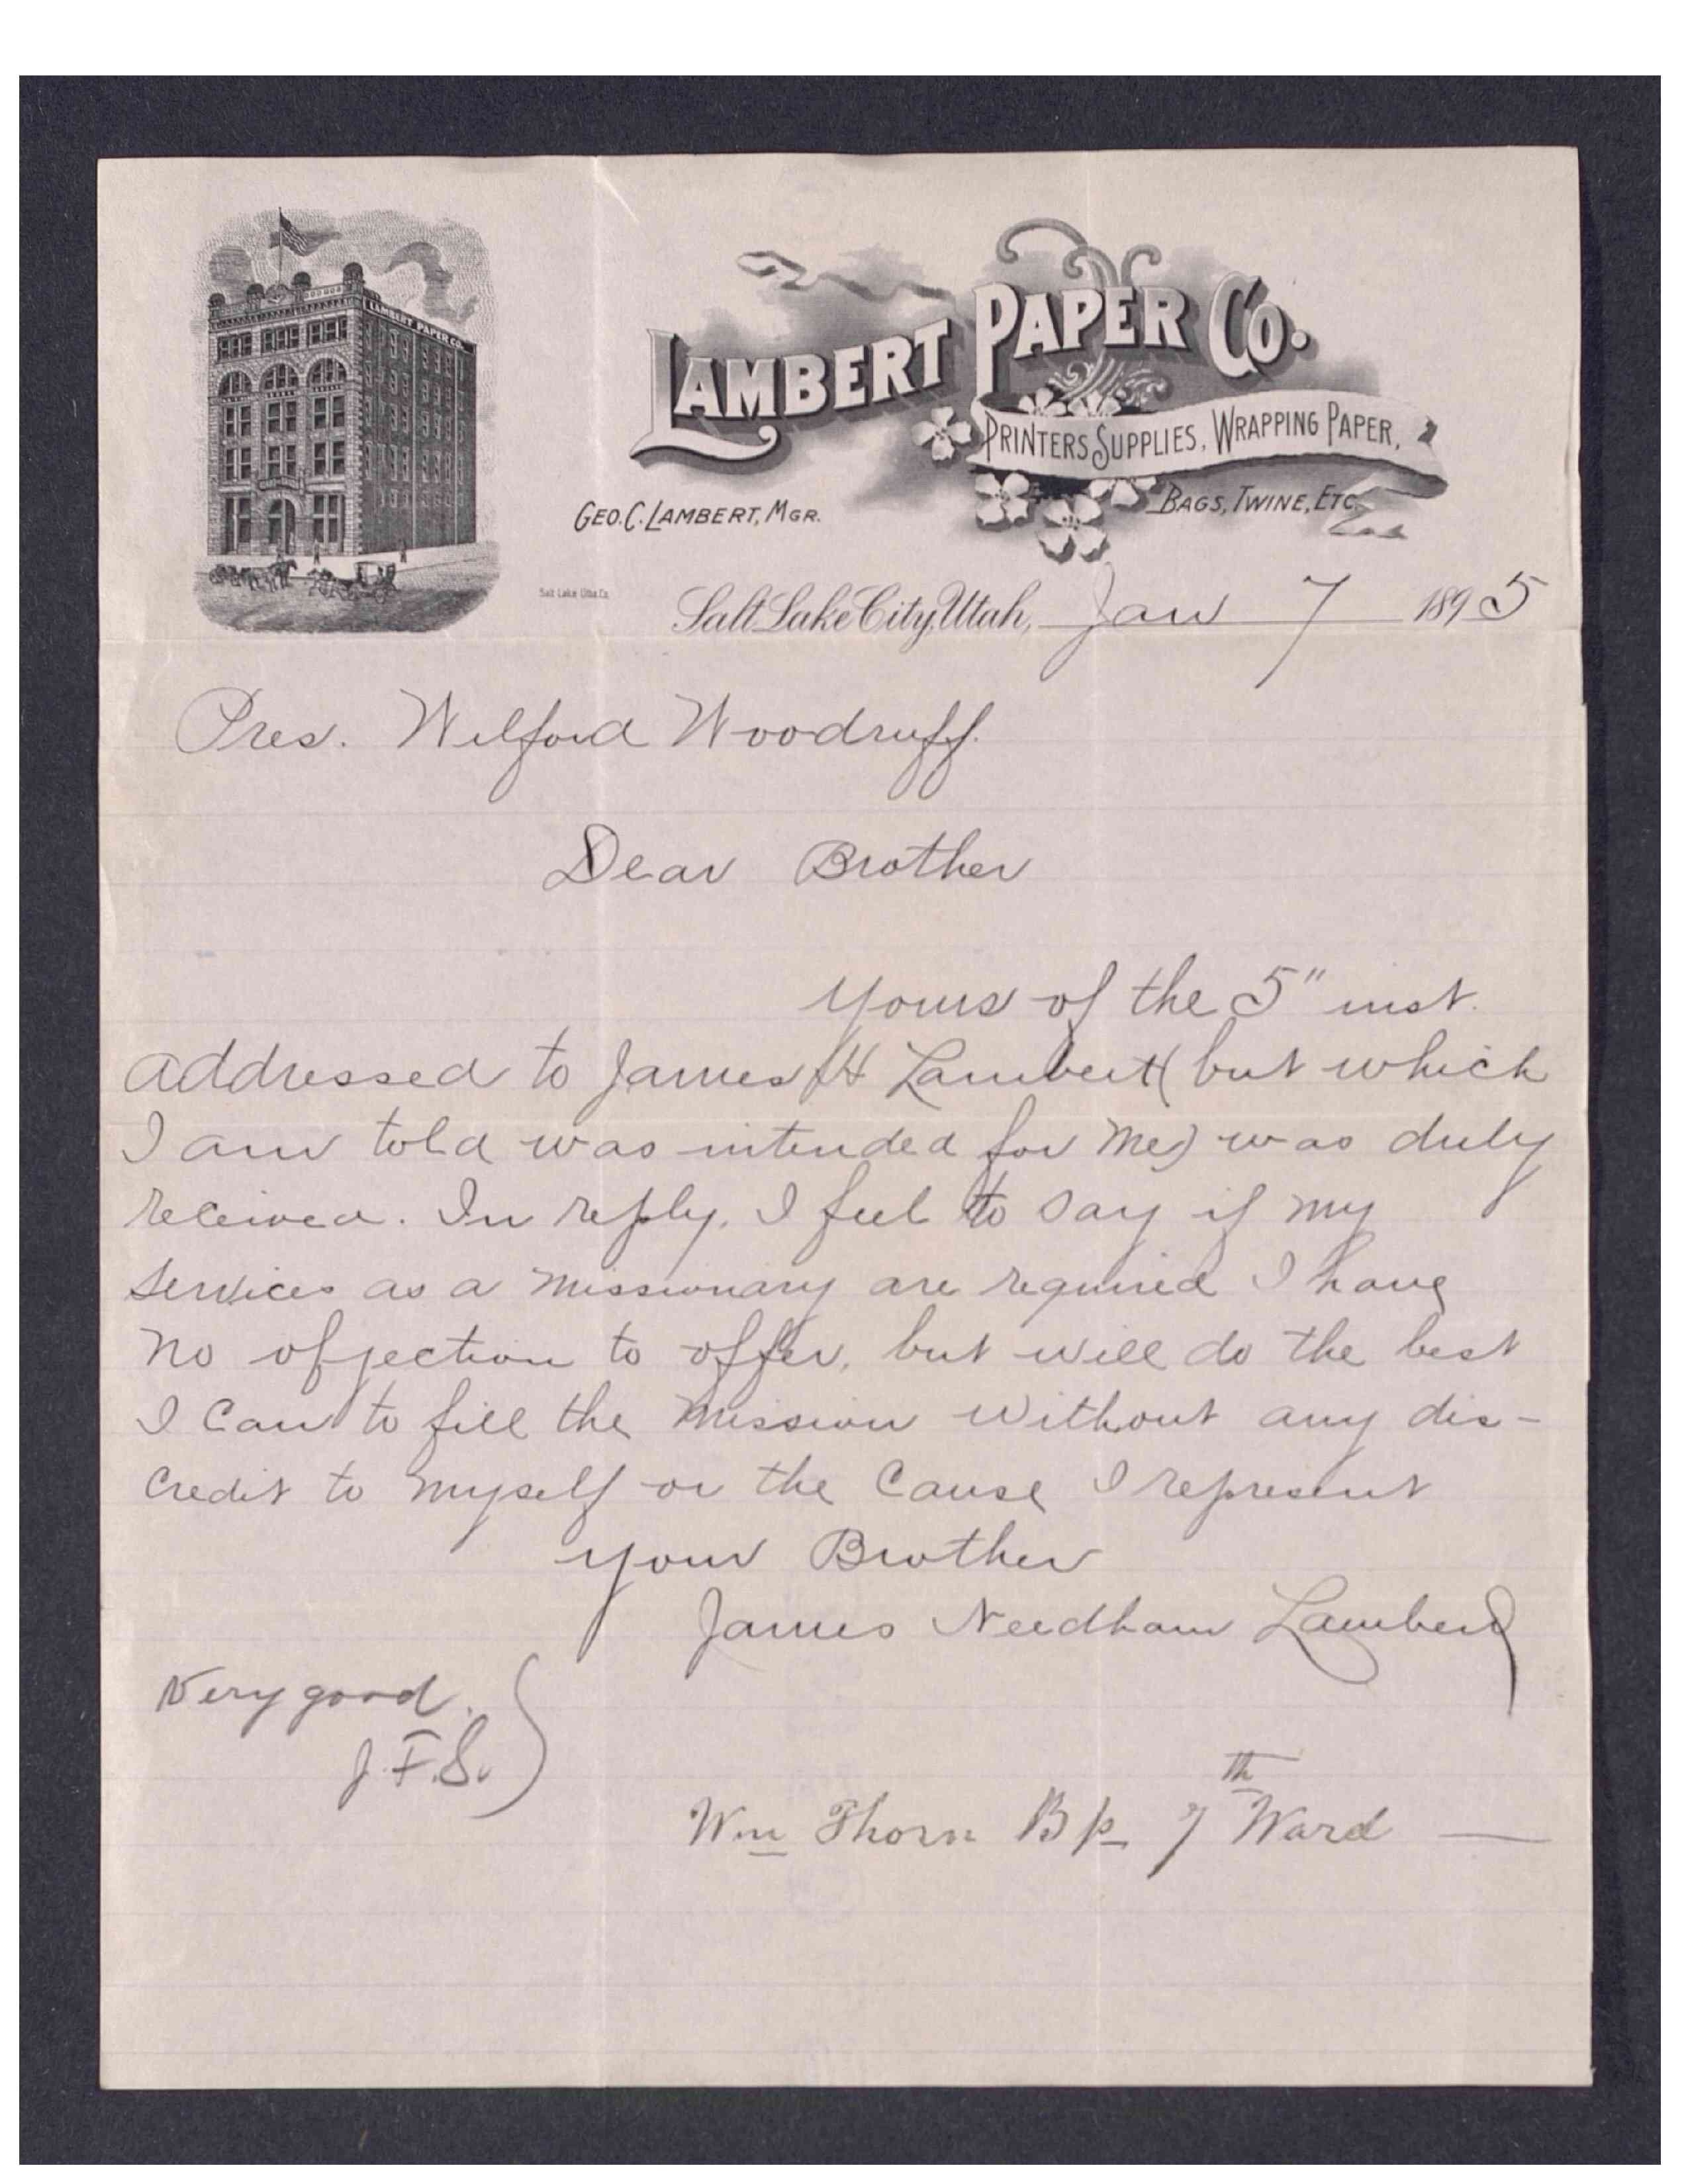 LAMBERT PAPER CO.
LAMBERT PAPER CO.
PRINTERS SUPPLIES, WRAPPING PAPER,
BAGS, TWINE, ETC.
GEO. C. LAMBERT, MGR.
Salt Lake City, Utah, Jan 7 1895
Pres. Wilford Woodruff.
Dear Brother
Yours of the 5" inst.
addressed to James H Lambert (but which
I am told was intended for me) was duly
received. In reply, I feel to say if my
services as a missionary are required I have
no objection to offer, but will do the best
I can to fill the mission without any dis-
credit to myself or the cause I represent
Your Brother
James Needham Lambert
Very good.
J. F. S.
Wm Thorn Bp 7th Ward